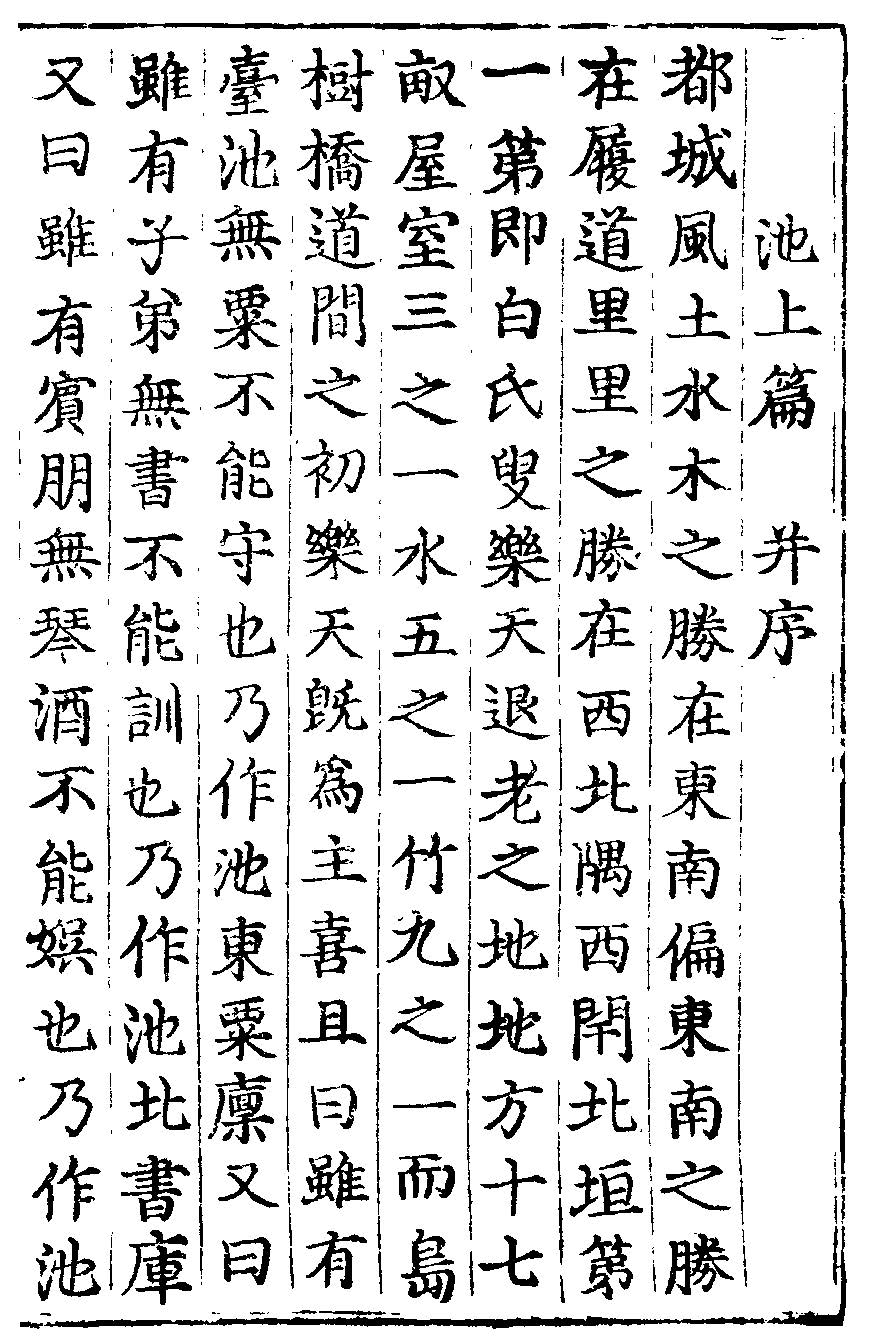 池上篇 并序
都城風土水木之勝在東南偏東南之勝
在履道里里之勝在西北隅西閈北垣第
一第即白氏叟樂天退老之地地方十七
畝屋室三之一水五之一竹九之一而島
樹橋道間之初樂天旣爲主喜且曰雖有
臺池無粟不能守也乃作池東粟廩又曰
雖有子弟無書不能訓也乃作池北書庫
又曰雖有賓朋無琴酒不能娛也乃作池